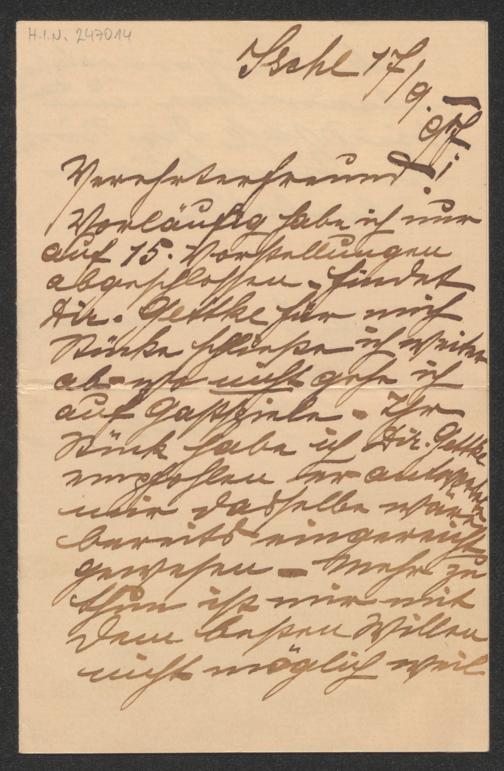 H.I.N. 247014
Ischl 17/9. 97
Verehrter Freund!
Vorläufig habe ich nur
auf 15. Vorstellungen
abgeschlossen, findet
Dir. Gettke für mich
Stücke schließe ich weiter
ab – wo nicht gehe ich
auf Gastspiele – Ihr
Stück habe ich Dir. Gettke
empfohlen er antwortete
mir dasselbe wäre
bereits eingereicht
gewesen – Mehr zu
thun ist mir mit
dem besten Willen
nicht möglich weil